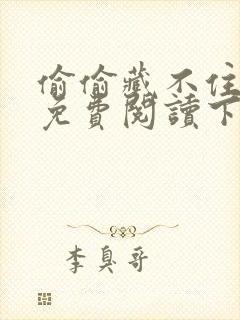 偷偷藏不住
免費閱讀下
李臭哥